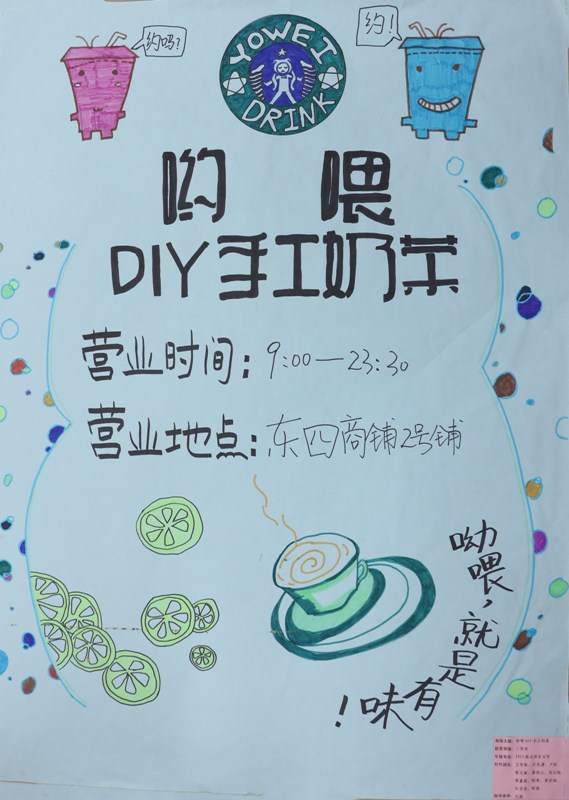 约吗?
约!
YOWEI
DRINK
哟 喂
DIY手工奶茶
营业时间:9:00—23:30
营业地点:东四商铺2号铺
呦喂,就是有味!